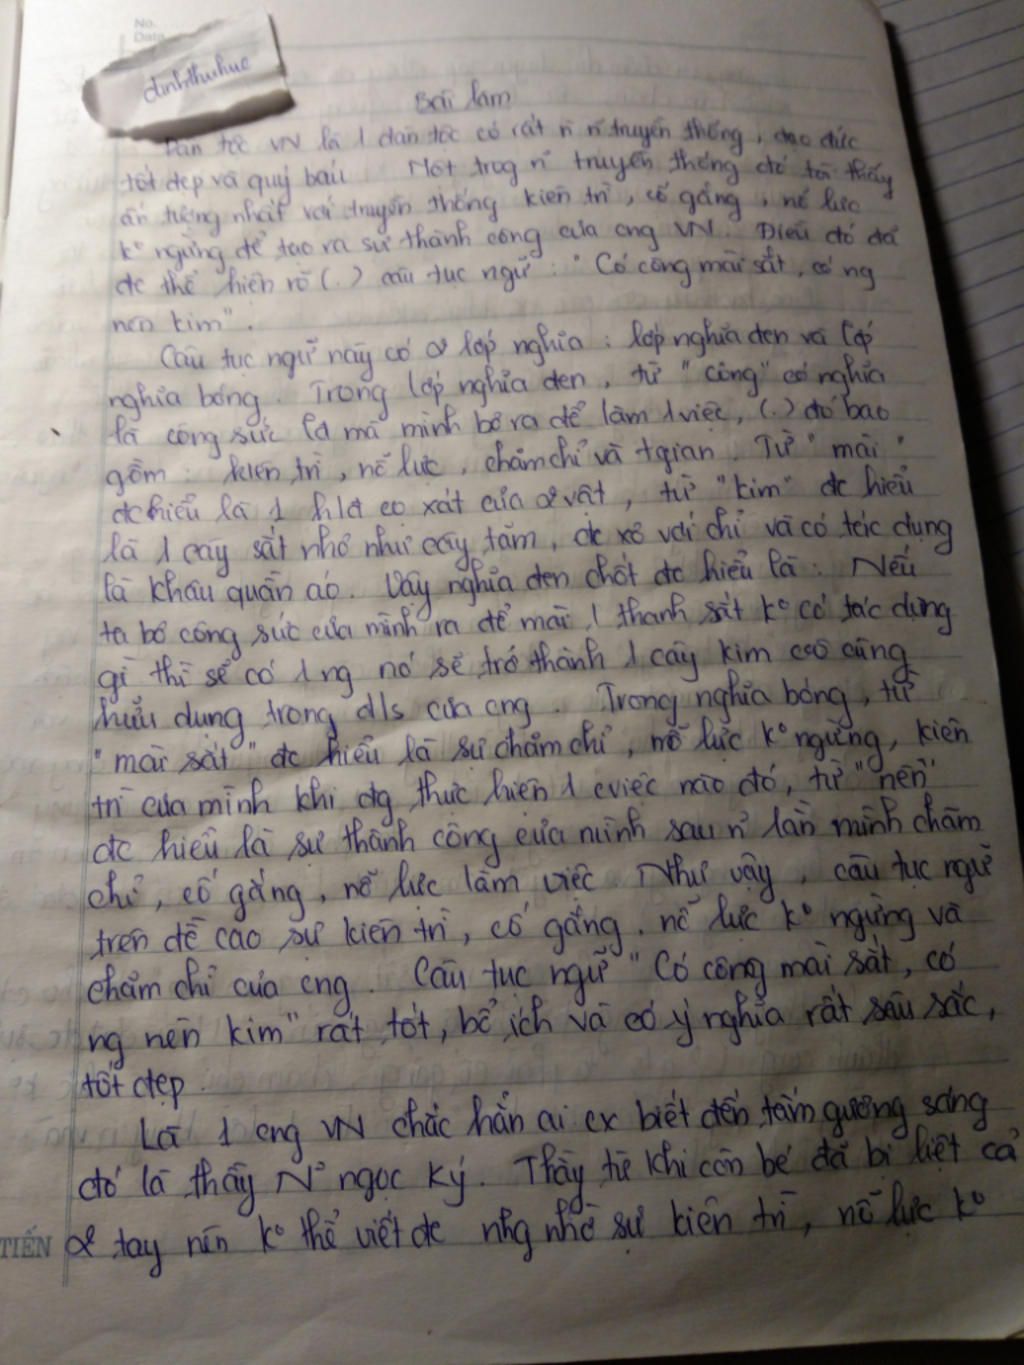 No.
Date
dinhthuhuc
Bài làm
Dân tộc VN là 1 dân tộc có rất n̉ n̉ truyền thống, đạo đức
tốt đẹp và quý báu. Một trog n̉ truyền thống đó tôi thấy
ấn tượng nhất với truyền thống kiên trì, cố gắng, nỗ lực
k° ngừng để tạo ra sự thành công của cng VN. Điều đó đã
đc thể hiện rõ (.) câu tục ngữ: "Có công mài sắt, có ng
nên kim".
Câu tục ngữ này có 2 lớp nghĩa: lớp nghĩa đen và lớp
nghĩa bóng. Trong lớp nghĩa đen, từ "công" có nghĩa
là công sức mà mình bỏ ra để làm 1 việc, (.) đó bao
gồm: kiên trì, nỗ lực, chăm chỉ và tgian. Từ "mài"
đc hiểu là 1 hđ cọ xát của 2 vật, từ "kim" đc hiểu
là 1 cây sắt nhỏ như cây tăm, đc xỏ với chỉ và có tác dụng
là khâu quần áo. Vậy nghĩa đen chốt đc hiểu là: Nếu
ta bỏ công sức của mình ra để mài 1 thanh sắt k° có tác dụng
gì thì sẽ có 1 ng nó sẽ trở thành 1 cây kim vô cùng
hữu dụng trong đ/s của cng. Trong nghĩa bóng, từ
"mài sắt" đc hiểu là sự chăm chỉ, nỗ lực k° ngừng, kiên
trì của mình khi đg thực hiện 1 cviệc nào đó, từ "nên"
đc hiểu là sự thành công của mình sau n̉ lần mình chăm
chỉ, cố gắng, nỗ lực làm việc. Như vậy, câu tục ngữ
trên đề cao sự kiên trì, cố gắng, nỗ lực k° ngừng và
chăm chỉ của cng. Câu tục ngữ "Có công mài sắt, có
ng nên kim" rất tốt, bổ ích và có ý nghĩa rất sâu sắc,
tốt đẹp.
Là 1 cng VN chắc hẳn ai cx biết đến tấm gương sáng
đó là thầy N̉ ngọc Ký. Thầy từ khi còn bé đã bị liệt cả
2 tay nên k° thể viết đc nhg nhờ sự kiên trì, nỗ lực k°
TIẾN